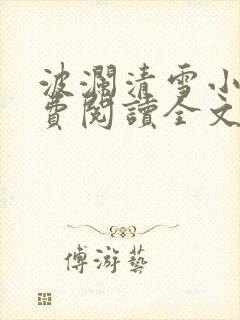 波瀾清雪小
費閱讀全文
傅游藝